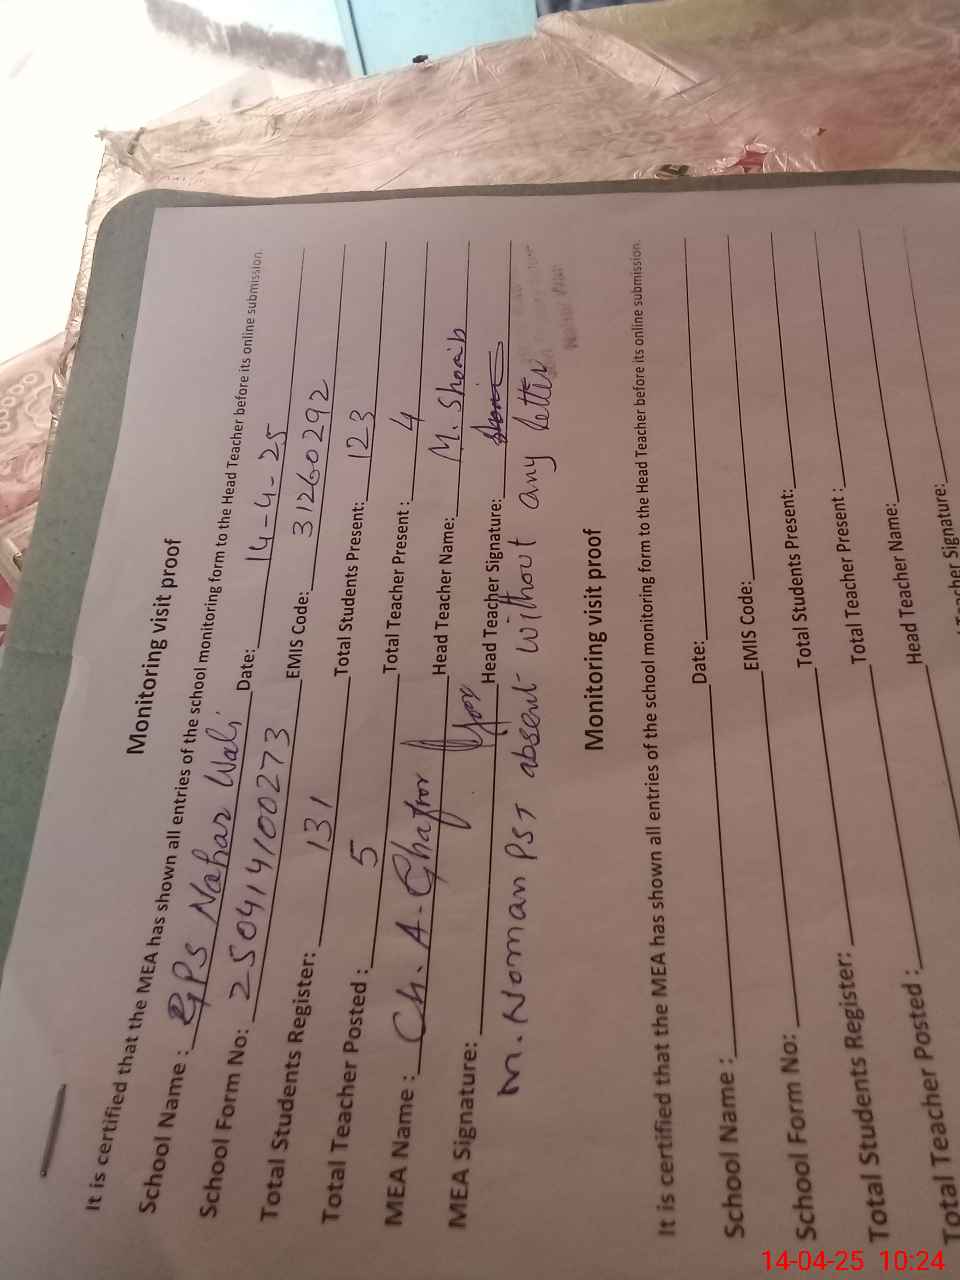 Monitoring visit proof
It is certified that the MEA has shown all entries of the school monitoring form to the Head Teacher before its online submission.
School Name : GPS Nahar Wali Date: 14-4-25
School Form No: 250414100273 EMIS Code: 31260292
Total Students Register: 131 Total Students Present: 123
Total Teacher Posted : 5 Total Teacher Present : 4
MEA Name : Ch. A-Ghafoor Head Teacher Name: M. Shoaib
MEA Signature: Head Teacher Signature:
M. Noman PST absent without any letter
Monitoring visit proof
It is certified that the MEA has shown all entries of the school monitoring form to the Head Teacher before its online submission.
School Name : Date:
School Form No: EMIS Code:
Total Students Register: Total Students Present:
Total Teacher Posted : Total Teacher Present :
Head Teacher Name:
Teacher Signature:
14-04-25 10:24